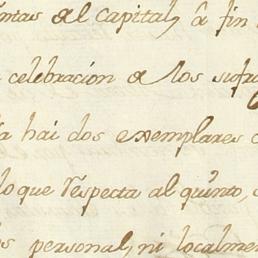 ntas del capital, â fin
celebración de los sufra
a hai dos exemplares
lo que respecta al quinto,
s personal, ni localmen